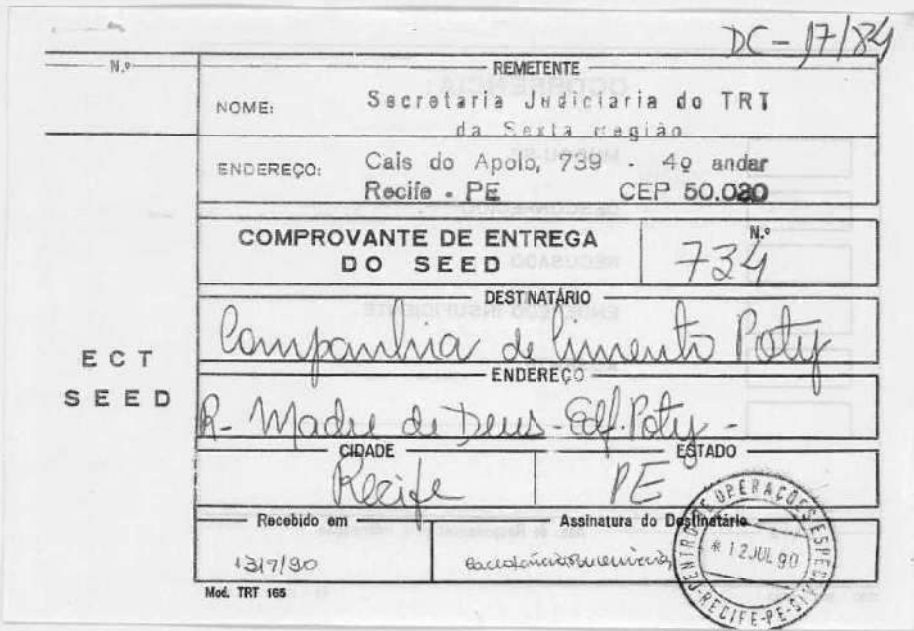 DC - 17/84
N.º
REMETENTE
NOME: Secretaria Judiciaria do TRT
da Sexta região
ENDEREÇO: Cais do Apolo, 739 - 4º andar
Recife - PE CEP 50.030
COMPROVANTE DE ENTREGA
DO SEED
N.º
734
DESTINATÁRIO
Companhia de Cimento Poty
ENDEREÇO
R- Madre de Deus - Edf. Poty -
ECT
SEED
CIDADE
Recife
ESTADO
PE
Recebido em
13/7/90
Assinatura do Destinatário
CENTRO DE OPERAÇÕES ESPECIAIS
* 12 JUL 90
RECIFE-PE
Mod. TRT 165